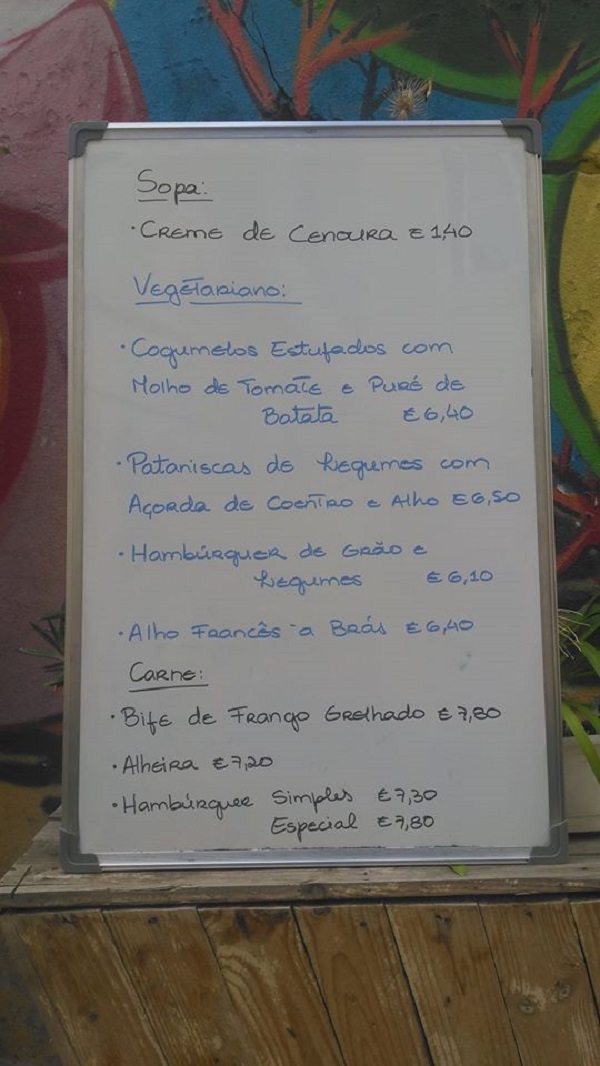 Sopa:
· Creme de Cenoura € 1,40
Vegetariano:
· Cogumelos Estufados com
Molho de Tomate e Puré de
Batata €6,40
· Pataniscas de Legumes com
Açorda de Coentro e Alho €6,50
· Hambúrguer de Grão e
Legumes €6,10
· Alho Francês à Brás €6,40
Carne:
· Bife de Frango Grelhado €7,80
· Alheira €7,20
· Hambúrguer Simples €7,30
Especial €7,80